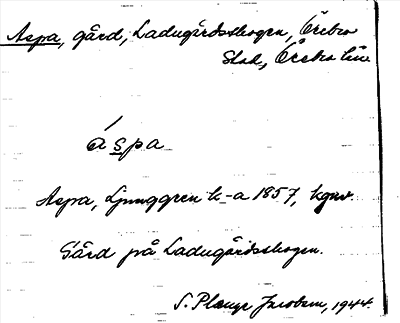 Aspa, gård, Ladugårdsskogen, Örebro
Stad, Örebro län
áspa
Aspa, Ljunggren k-a 1857, kgnr.
Gård på Ladugårdsskogen.
S. Plenge Jacobsen, 1944.